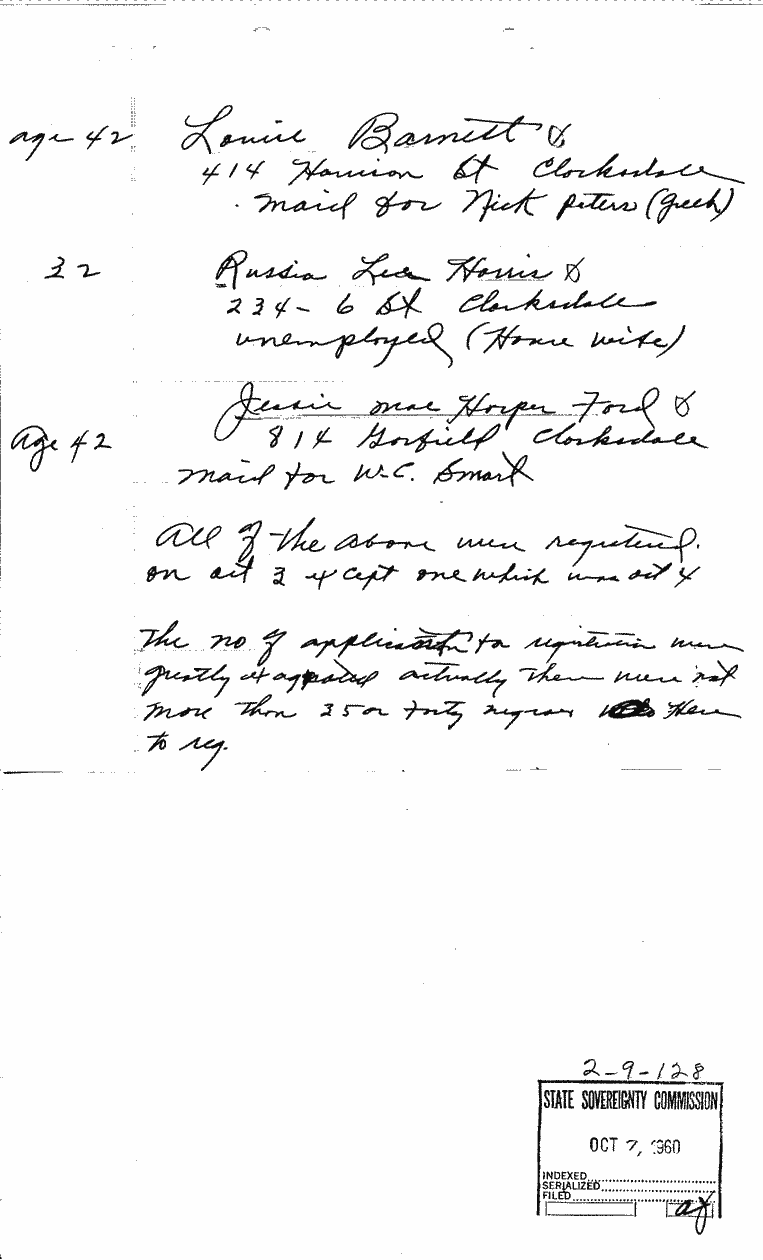 age 42 Louise Barnett &
414 Harrison St Clarksdale
maid for Nick Peters (Greek)
32 Russia Lee Harris &
234- 6 St Clarksdale
unemployed (House wife)
Jessie mae Harper Ford &
Age 42 814 Garfield Clarksdale
maid for W.C. Smart
All of the above were registered.
on oct 3 except one which was oct 4
The no of applicants to registration were
greatly exagerated actually there were not
more than 35 or forty negroes there
to reg.
2-9-128
STATE SOVEREIGNTY COMMISSION
OCT 7, 1960
INDEXED
SERIALIZED
FILED